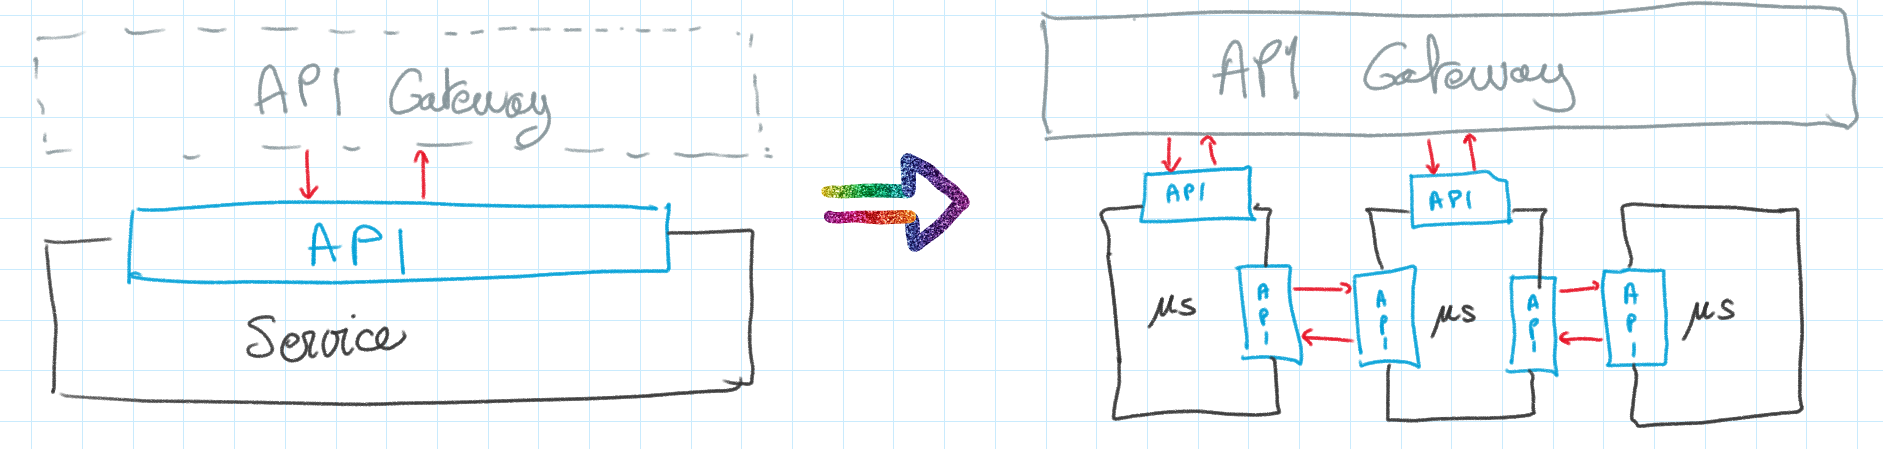 API Gateway
API
Service
API Gateway
API
API
μs
API
API
μs
API
API
μs